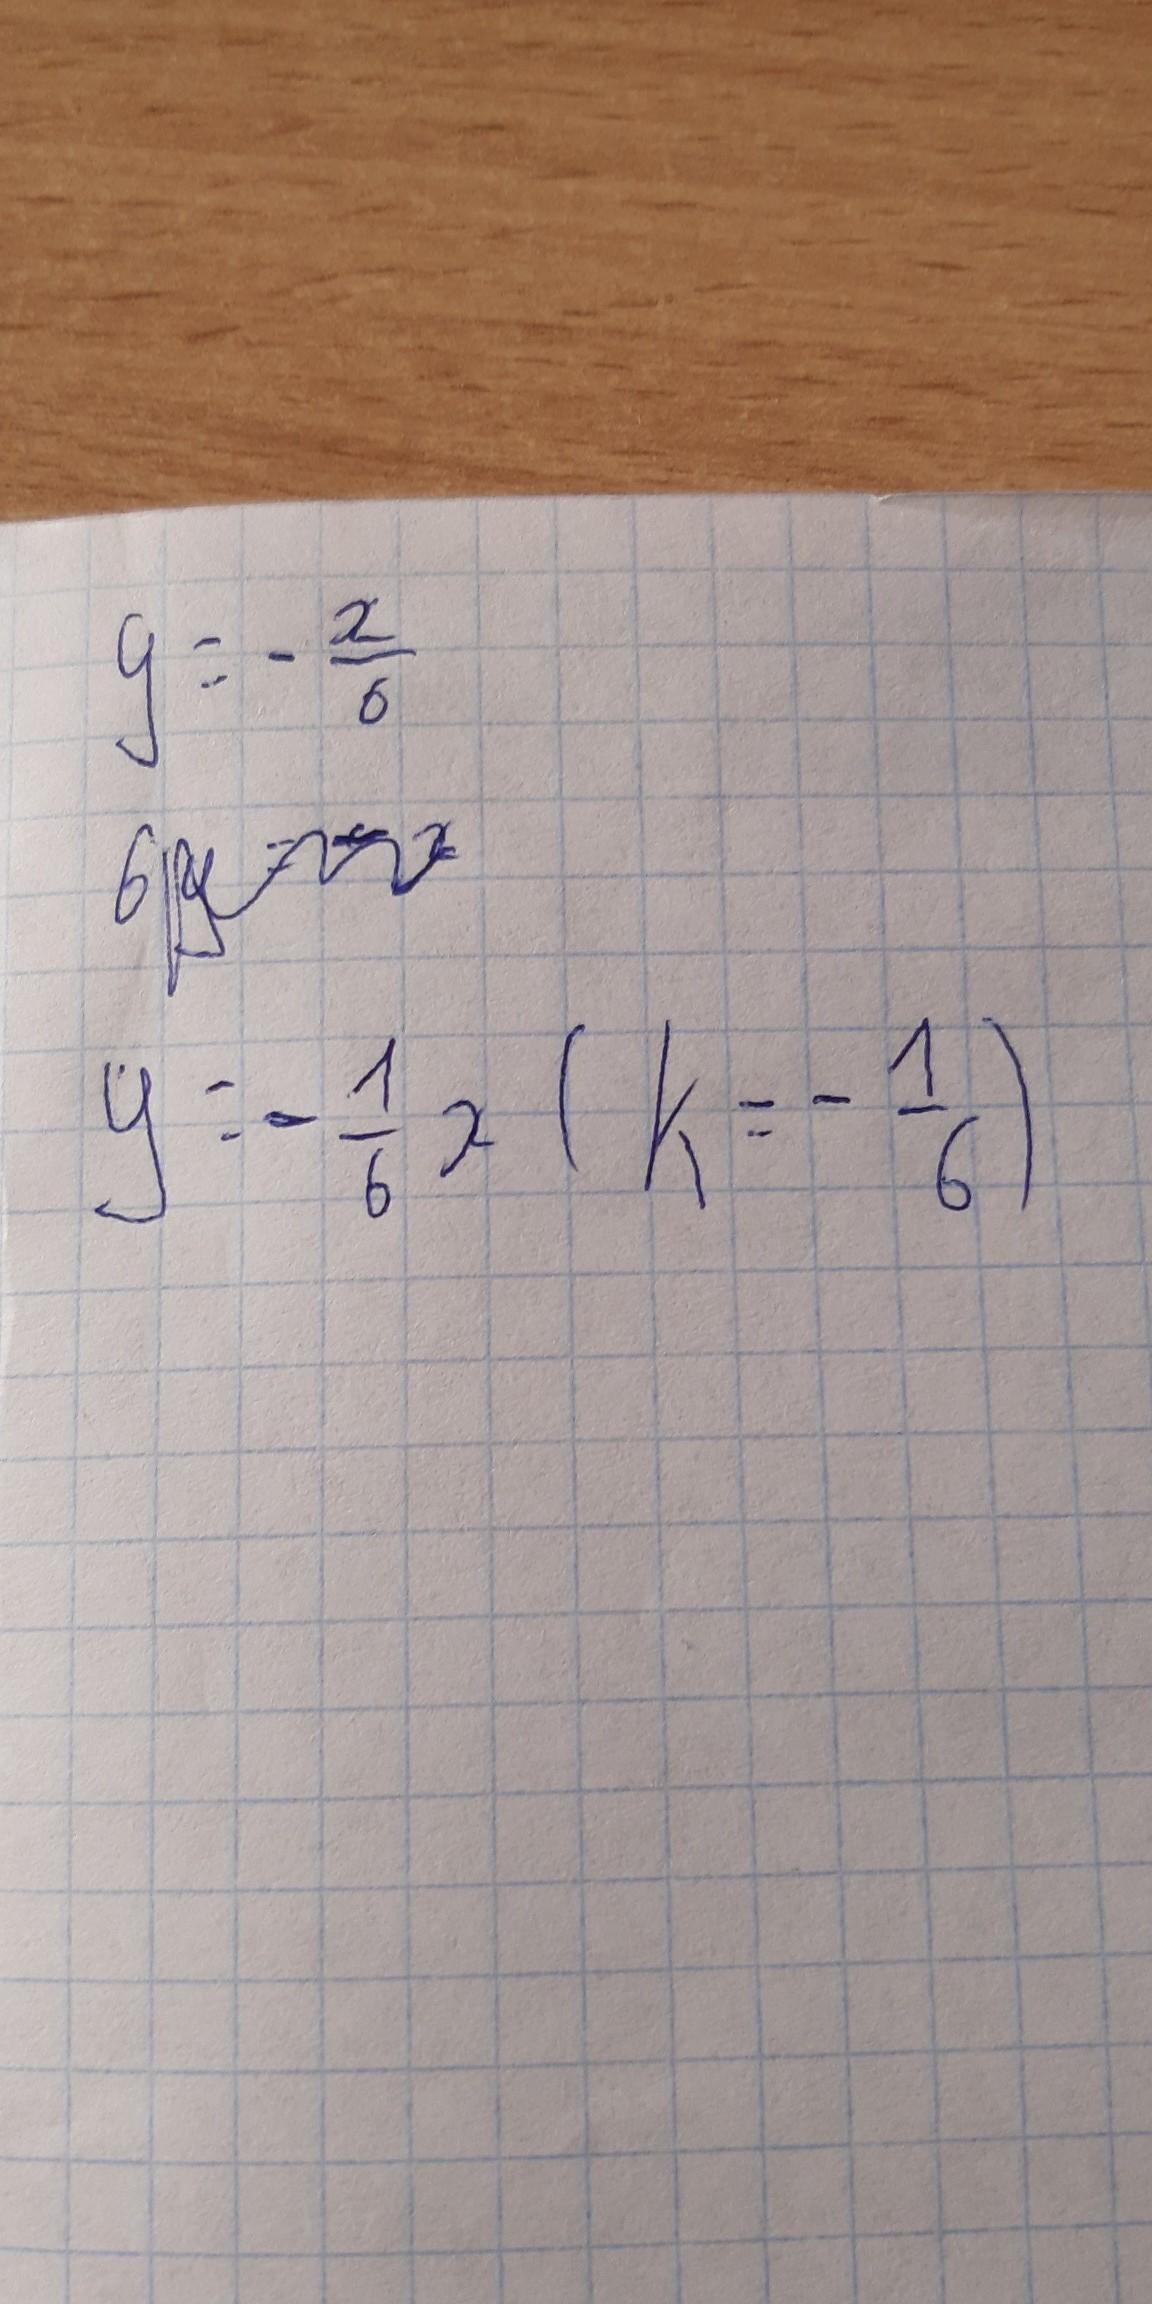 y = - x/6
y = - 1/6 x ( k = - 1/6 )